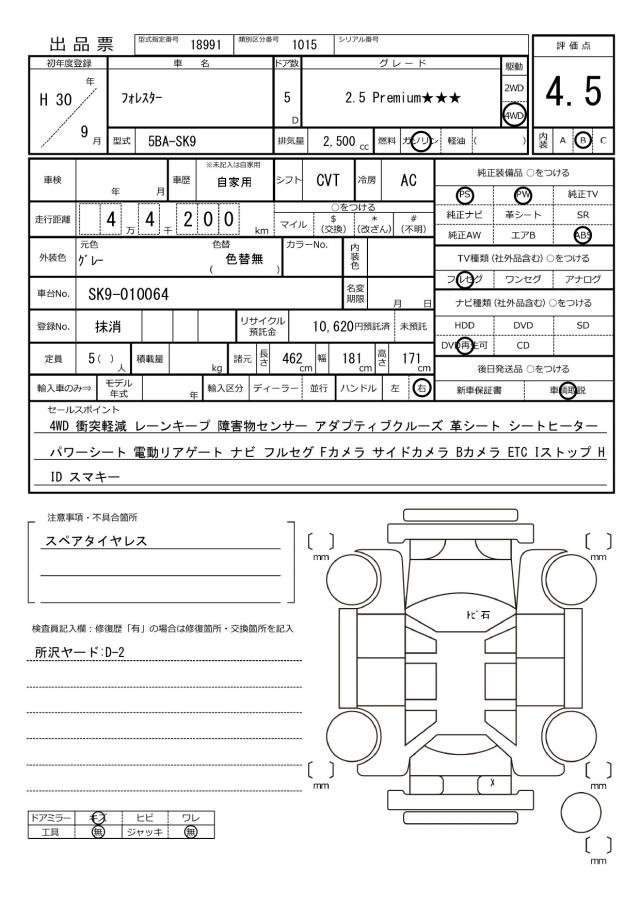 出品票 型式指定番号 18991 類別区分番号 1015 シリアル番号
初年度登録 車名 ドア数 グレード 駆動 評価点
H 30 年 9 月 フォレスター 5 D 2.5 Premium★★★ 2WD 4WD 4.5
型式 5BA-SK9 排気量 2,500 cc 燃料 ガソリン 軽油 ( ) 内装 A B C
車検 年 月 車歴 ※未記入は自家用 自家用 シフト CVT 冷房 AC
純正装備品 ○をつける
PS PW 純正TV
走行距離 4 万 4 千 2 0 0 km ○をつける
マイル $ (交換) * (改ざん) # (不明)
純正ナビ 革シート SR
純正AW エアB ABS
外装色 元色 グレー 色替 ( 色替無 ) カラーNo. 内装色
TV種類 (社外品含む) ○をつける
フルセグ ワンセグ アナログ
車台No. SK9-010064 名変期限 月 日
ナビ種類 (社外品含む) ○をつける
登録No. 抹消 リサイクル預託金 10,620円預託済 未預託
HDD DVD SD
DVD再生可 CD
定員 5 ( ) 人 積載量 kg 諸元 長さ 462 cm 幅 181 cm 高さ 171 cm
後日発送品 ○をつける
輸入車のみ⇒ モデル年式 年 輸入区分 ディーラー 並行 ハンドル 左 右
新車保証書 車輌取説
セールスポイント
4WD 衝突軽減 レーンキープ 障害物センサー アダプティブクルーズ 革シート シートヒーター
パワーシート 電動リアゲート ナビ フルセグ Fカメラ サイドカメラ Bカメラ ETC Iストップ H
ID スマキー
注意事項・不具合箇所
スペアタイヤレス
検査員記入欄：修復歴「有」の場合は修復箇所・交換箇所を記入
所沢ヤード:D-2
mm mm
トビ石
mm X mm
mm
ドアミラー キズ ヒビ ワレ
工具 無 ジャッキ 無